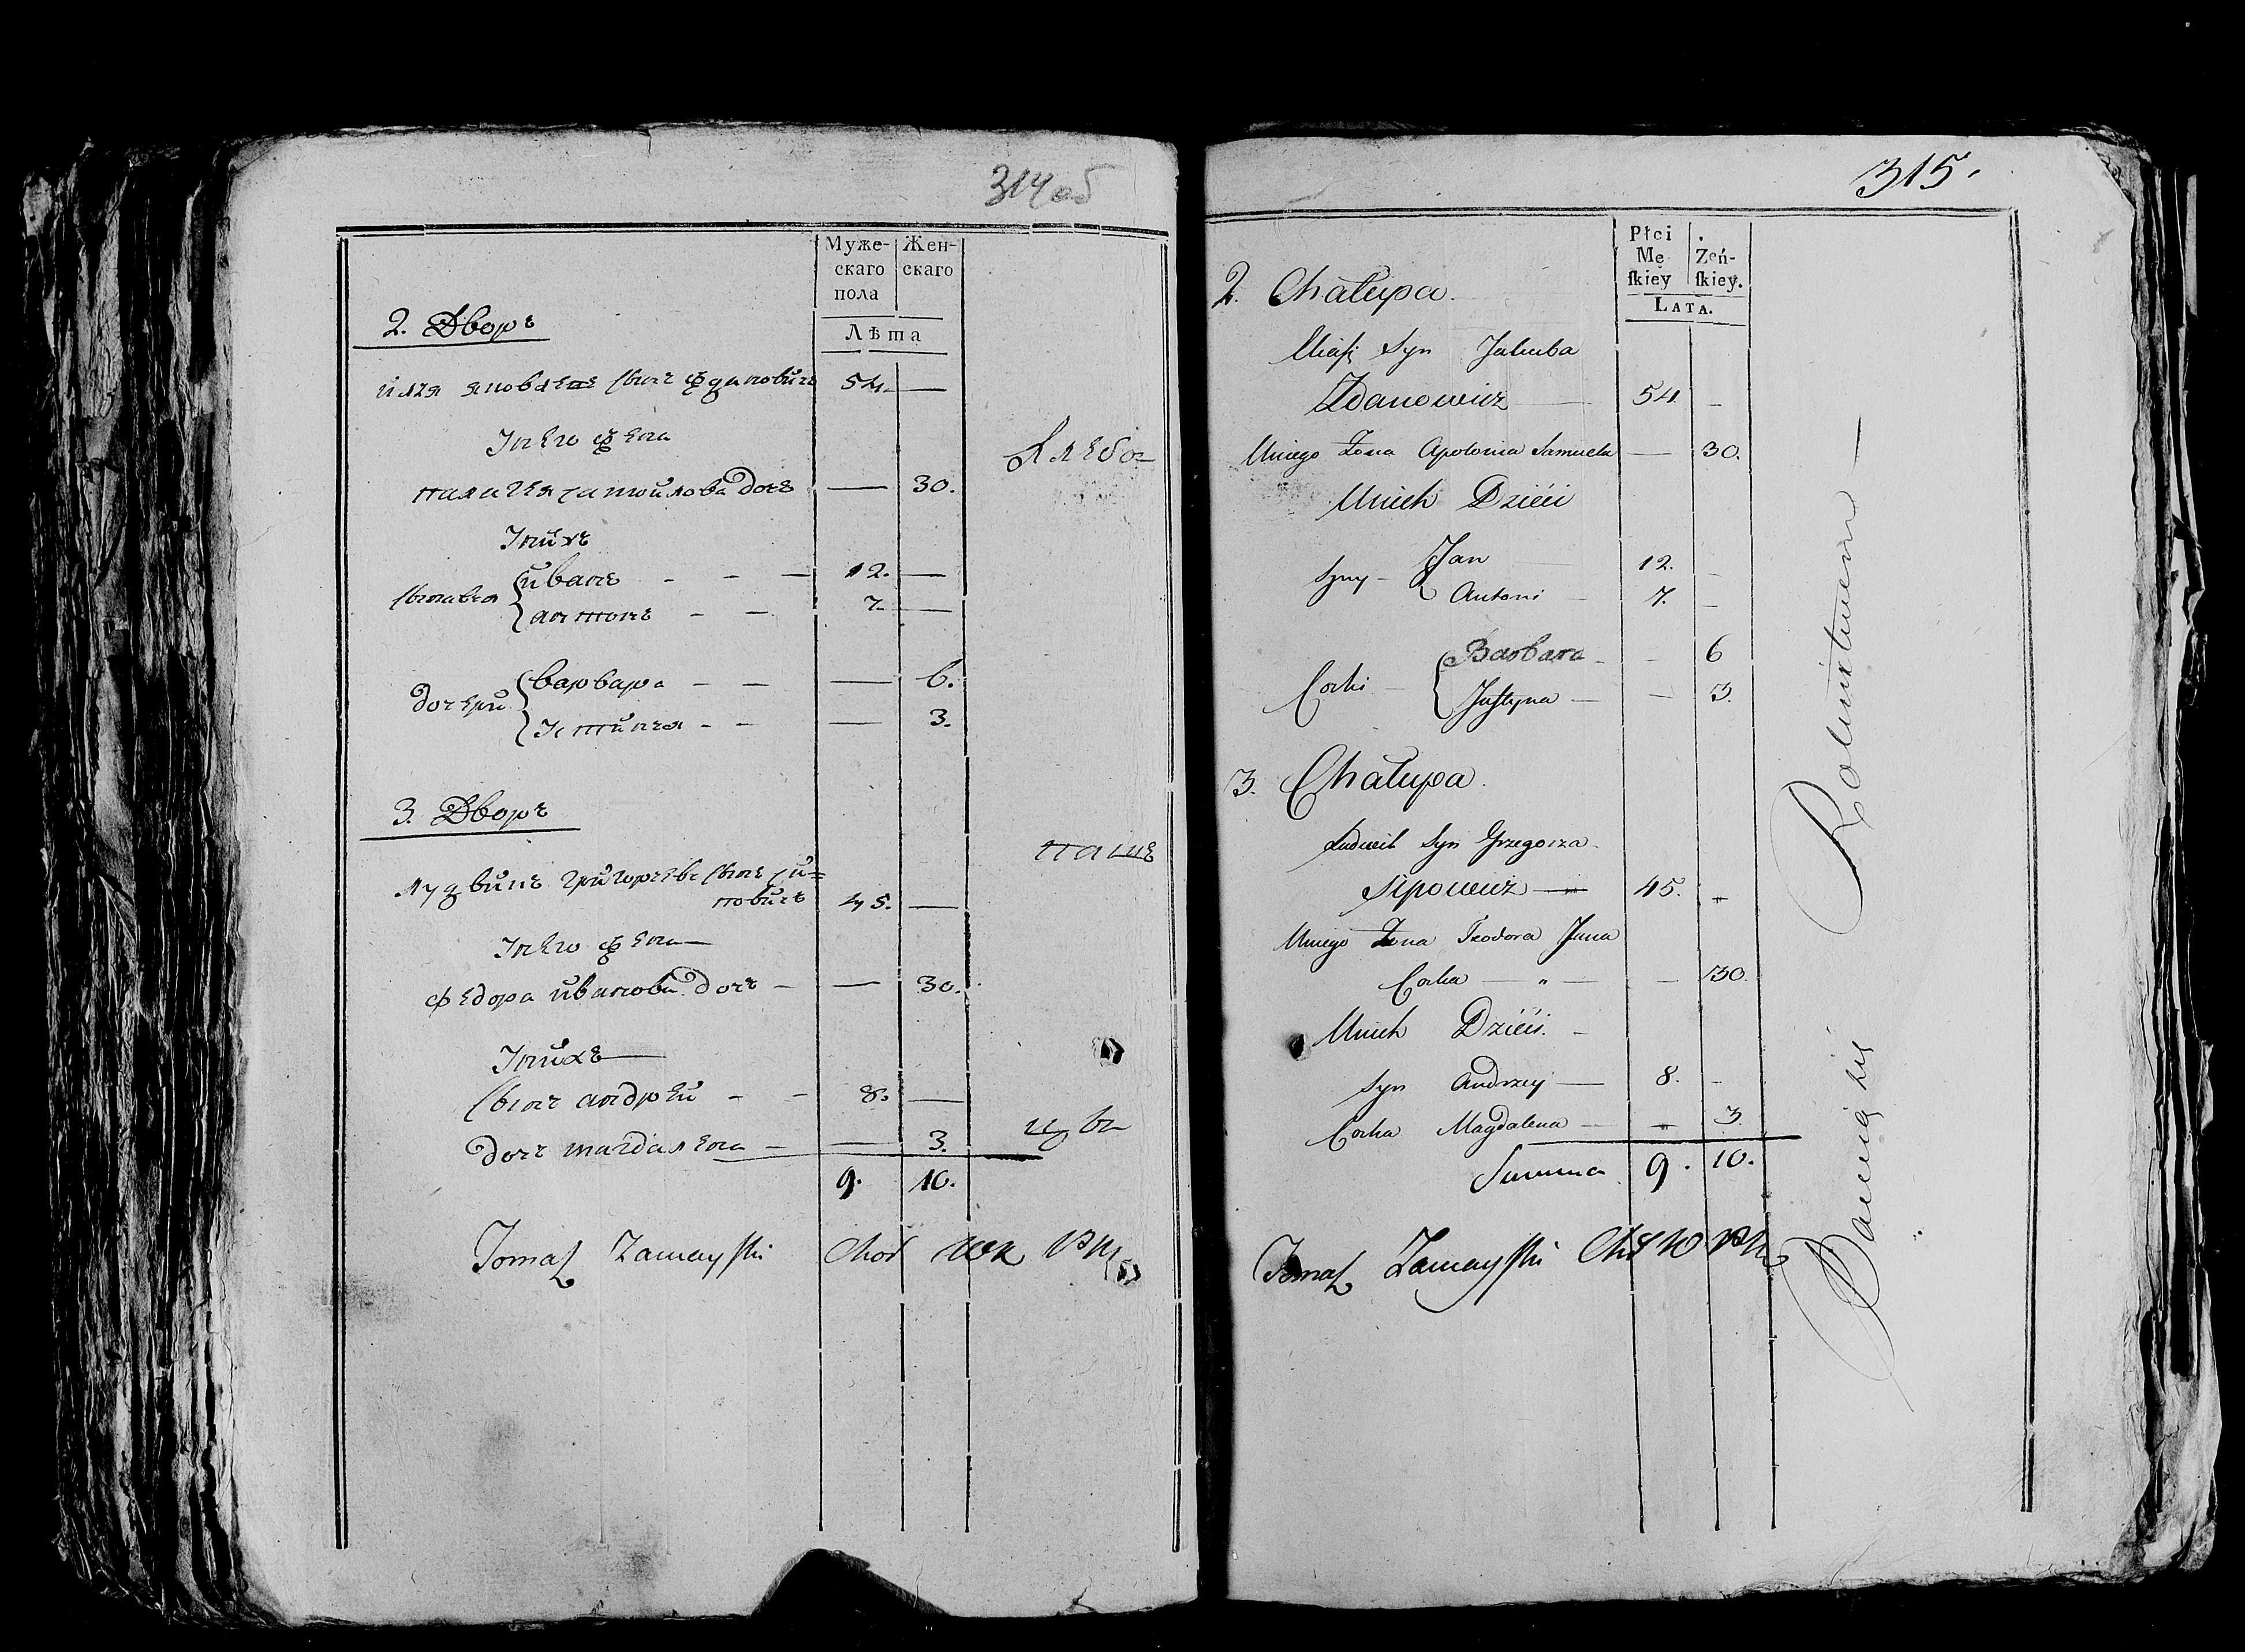 314 об
Муже-
скаго
пола
Жен-
скаго
Лѣта
2. Дворъ
илья яковлевъ сынъ ждановичъ 54. —
Унего жена
палагея самойлова дочь — 30.
Хлебо=
Унихъ
сыновья
иванъ - - — 12. —
антонъ - — 7. —
дочери
варвара - — — 6.
Устинья - - — 3.
3. Дворъ
лудвикъ григорьевъ сынъ си=
повичъ 45. —
паше
Унего жена
федора иванова дочь - — 30.
Унихъ
сынъ андрей - - 8. —
дочь магдалена - — 3.
цы
9. 10.
Tomasz Zamayski Chor
315.
Płci
Mę
skiey
Żeń-
skiey.
Lata.
2. Chałupa.
Eliasz Syn Jakuba
Zdanowicz — 54 –
Uniego Żona Apolonia Samuela — 30.
Unich Dzieci
Syny –
Jan 12. –
Antoni – 7. –
Corki –
Barbara – – 6
Justyna — — 3.
3. Chałupa.
Ludwik Syn Grzegorza
Sipowicz — 45. –
Uniego Żona Teodora Jana
Corka — „ — – 30.
Unich Dzieci. –
Syn Andrzey — 8. –
Corka Magdalena — – 3.
Summa 9. 10.
Tomasz Zamayski
Bawią się Rolnictwem —